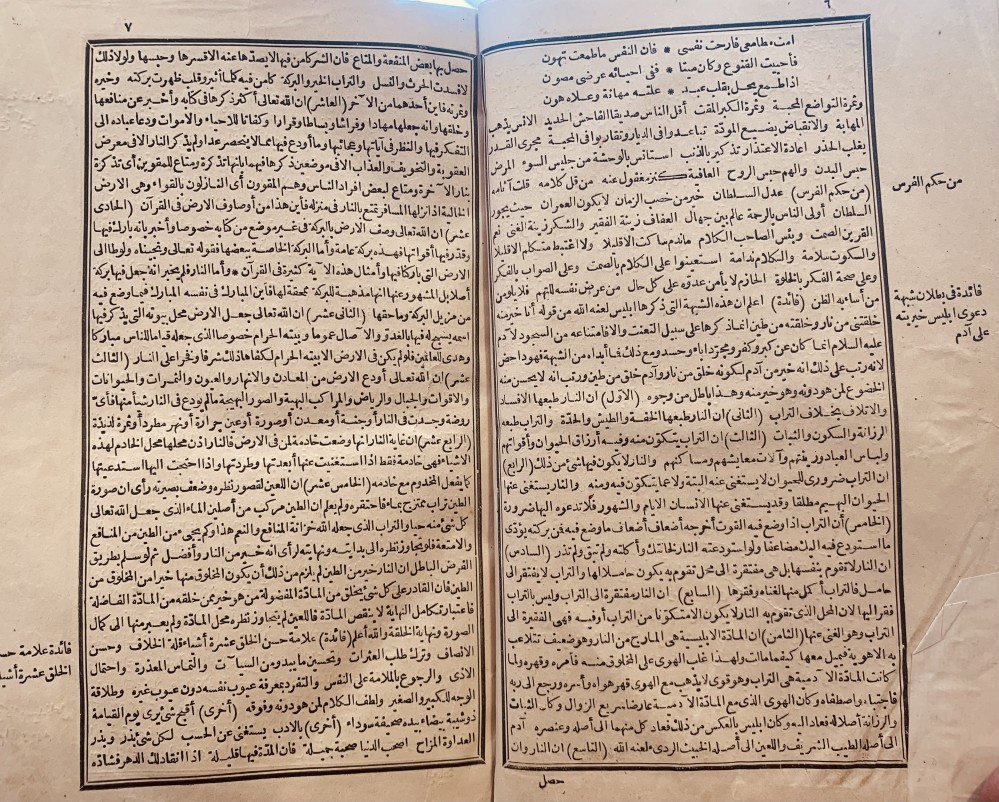 ٦
امت مطامعى فارحت نفسى * فان النفس ماطمعت تهون
فأحييت القنوع وكان ميتا * ففى احيائه عرضى مصون
اذا طمع يحل بقلب عبد * علته مهانة وعلاه هون
وثمرة التواضع المحبة وثمرة الكبر المقت أقل الناس صديقا الفاحش الحديد الانس يذهب
المهابة والانقباض يضيع المودّة تباعدوا فى الديار وتقاربوا فى المحبة مجرى القدر
يغلب الحذر اعادة الاعتذار تذكير بالذنب استأنس بالوحشة من جليس السوء المرض
حبس البدن والهم حبس الروح العافية كنز مغفول عنه من قل كلامه قلت آثامه
(من حكم الفرس) عدل السلطان خير من خصب الزمان لايكون العمران حيث يجور
السلطان أولى الناس بالرحمة عالم بين جهال العفاف زينة الفقير والشكر زينة الغنى نعم
القرين الصمت وبئس الصاحب الكلام ماندم ساكت الاقليلا ولا اغتبط متكلم الاقليلا
والسكوت سلامة والتكلم ندامة استعينوا على الكلام بالصمت وعلى الصواب بالفكر
وعلى صحة الفكر بالخلوة الحازم لا يأمن عدوه على كل حال من عرض نفسه للتهم فلا يلومن
من أساء به الظن (فائدة) اعلم ان هذه الشبهة التى ذكرها ابليس لعنه الله من قوله أنا خير منه
خلقتنى من نار وخلقته من طين انما ذكرها على سبيل التعنت والا فامتناعه من السجود لآدم
عليه السلام انما كان عن كبر وكفر ومجرد اباء وحسد ومع ذلك فما أبداه من الشبهة فهو داحض
لانه رتب على ذلك انه خير من آدم لكونه خلق من نار وآدم خلق من طين ورتب انه لايحسن منه
الخضوع لمن هو دونه وهو خير منه وهذا باطل من وجوه (الاول) ان النار طبعها الافساد
والاتلاف بخلاف التراب (الثانى) ان النار طبعها الخفة والطيش والحدة والتراب طبعه
الرزانة والسكون والثبات (الثالث) ان التراب يتكون منه وفيه أرزاق الحيوان وأقواتهم
ولباس العباد وزينتهم وآلات معايشهم ومساكنهم والنار لا يكون فيها شئ من ذلك (الرابع)
ان التراب ضرورى للحيوان لا يستغنى عنه البتة ولا عما يتكون فيه ومنه والنار يستغنى عنها
الحيوان البهيم مطلقا وقد يستغنى عنها الانسان الايام والشهور فلا تدعوه اليها ضرورة
(الخامس) أن التراب اذا وضع فيه القوت أخرجه أضعاف أضعاف ماوضع فيه فمن بركته يؤدى
ما استودع فيه اليك مضاعفا ولو استودعته النار لخانتك وأكلته ولم تبق ولم تذر (السادس)
ان النار لا تقوم بنفسها بل هى مفتقرة الى محل تقوم به يكون حاملا لها والتراب لا يفتقر الى
حامل فالتراب أكمل منها لغناه وفقرها (السابع) ان النار مفتقرة الى التراب وليس بالتراب
فقر اليها لان المحل الذى تقوم به النار لا يكون الا متكونا من التراب أو فيه فهى الفقيرة الى
التراب وهو الغنى عنها (الثامن) ان المادّة الابليسية هى المارج من النار وهو ضعيف تتلاعب
به الاهوية فيميل معها كيفما مالت ولهذا غلب الهوى على المخلوق منه فأمره وقهره ولما
كانت المادّة الآدمية هى التراب وهو قوى لا يذهب مع الهوى قهر هواه وأسره ورجع الى ربه
فاجتباه واصطفاه وكان الهوى الذى مع المادّة الآدمية عارضا سريع الزوال وكان الثبات
والرزانة أصلا له فعاد اليه وكان ابليس بالعكس من ذلك فعاد كل منهما الى أصله وعنصره آدم
الى أصله الطيب الشريف واللعين الى أصله الخبيث الردى لعنه الله (التاسع) ان النار وان
حصل
من حكم الفرس
فائدة فى بطلان شبهة
دعوى ابليس خيريته
على آدم
٧
حصل بها بعض المنفعة والمتاع فان الشر كامن فيها لا يصدها عنه الا قسرها وحبسها ولولا ذلك
لافسدت الحرث والنسل والتراب الخير والبركة كامن فيه كلما أثير وقلب ظهرت بركته وخيره
وثمرته فاين أحدهما من الآخر (العاشر) ان الله تعالى أكثر ذكرها فى كتابه وأخبر عن منافعها
وخلقها وانه جعلها مهادا وفراشا وبساطا وقرارا وكفاتا للاحياء والاموات ودعا عباده الى
التفكر فيها والنظر فى آياتها وعجائبها وما أودع فيها مما لا ينحصر عدا ولم يذكر النار الا فى معرض
العقوبة والتخويف والعذاب الا فى موضعين ذكرها فيهما بانها تذكرة ومتاع للمقوين أى تذكرة
بنار الآخرة ومتاع لبعض افراد الناس وهم المقوون أى النازلون بالقواء وهى الارض
الخالية اذا نزلها المسافر تمتع بالنار فى منزله فأين هذا من أوصاف الارض فى القرآن (الحادى
عشر) ان الله تعالى وصف الارض بالبركة فى غير موضع من كتابه خصوصا وأخبر بانه بارك فيها
وقدر فيها أقواتها فهذه بركة عامة وأما البركة الخاصة ببعضها فقوله تعالى ونجيناه ولوطا الى
الارض التى باركنا فيها وأمثال هذه الآية كثيرة فى القرآن * وأما النار فلم يخبر انه جعل فيها بركة
أصلا بل المشهور عنها انها مذهبة للبركة ممحقة لها فأين المبارك فى نفسه المبارك فيما وضع فيه
من مزيل البركة وماحقها (الثانى عشر) ان الله تعالى جعل الارض محل بيوته التى يذكر فيها
اسمه ويسبح له فيها بالغدو والآصال عموما وبيته الحرام خصوصا الذى جعله قياما للناس مباركا
وهدى للعالمين فلو لم يكن فى الارض الا بيته الحرام لكفاها ذلك شرفا وفخرا على النار (الثالث
عشر) ان الله تعالى أودع الارض من المعادن والانهار والعيون والثمرات والحيوانات
والاقوات والجبال والرياض والمراكب البهية والصور البهيجة مالم يودع فى النار شيأ منها فأى
روضة وجدت فى النار أو جنة أو معدن أو صورة أو عين جرارة أو نهر مطرد أو ثمرة لذيذة
(الرابع عشر) ان غاية النار انها وضعت خادمة لمن فى الارض فالنار اذن محلها محل الخادم لهذه
الاشياء فهى خادمة فقط اذا استغنيت عنها أبعدتها وطردتها واذا احتجت اليها استدعيتها
كما يفعل المخدوم مع خادمه (الخامس عشر) ان اللعين لقصور نظره وضعف بصيرته رأى ان صورة
الطين تراب ممتزج بماء فاحتقره ولم يعلم ان الطين مركب من أصلين الماء الذى جعل الله تعالى
كل شئ منه حيا والتراب الذى جعله الله خزانة المنافع والنعم هذا وكم يجئ من الطين من المنافع
والامتعة فلو تجاوز نظره الى بدايته ونهايته لرأى انه خير من النار وأفضل ثم لو سلم بطريق
الفرض الباطل ان النار خير من الطين لم يلزم من ذلك أن يكون المخلوق منها خيرا من المخلوق من
الطين فان القادر على كل شئ يخلق من المادّة المفضولة من هو خير ممن خلقه من المادّة الفاضلة
فاعتبار تكامل النهاية لا بنقص المادّة فاللعين لم يتجاوز نظره محل المادّة ولم يعبر منها الى كمال
الصورة ونهاية الخلقة والله أعلم (فائدة) علامة حسن الخلق عشرة أشياء قلة الخلاف وحسن
الانصاف وترك طلب العثرات وتحسين ما يبدو من السيآت والتماس المعذرة واحتمال
الاذى والرجوع بالملامة على النفس والتفرد بمعرفة عيوب نفسه دون عيوب غيره وطلاقة
الوجه للكبير والصغير ولطف الكلام لمن هو دونه وفوقه (أخرى) أقبح شئ يرى يوم القيامة
ذو شيبة بيضاء بيده صحيفة سوداء (أخرى) بالادب يستغنى عن الحسب لكل شئ بذر وبذر
العداوة المزاح اصحب الدنيا صحبة جميلة فان المدّة فيها قليلة اذا انقاد لك الدهر
فائدة علامة حسن
الخلق عشرة أشياء